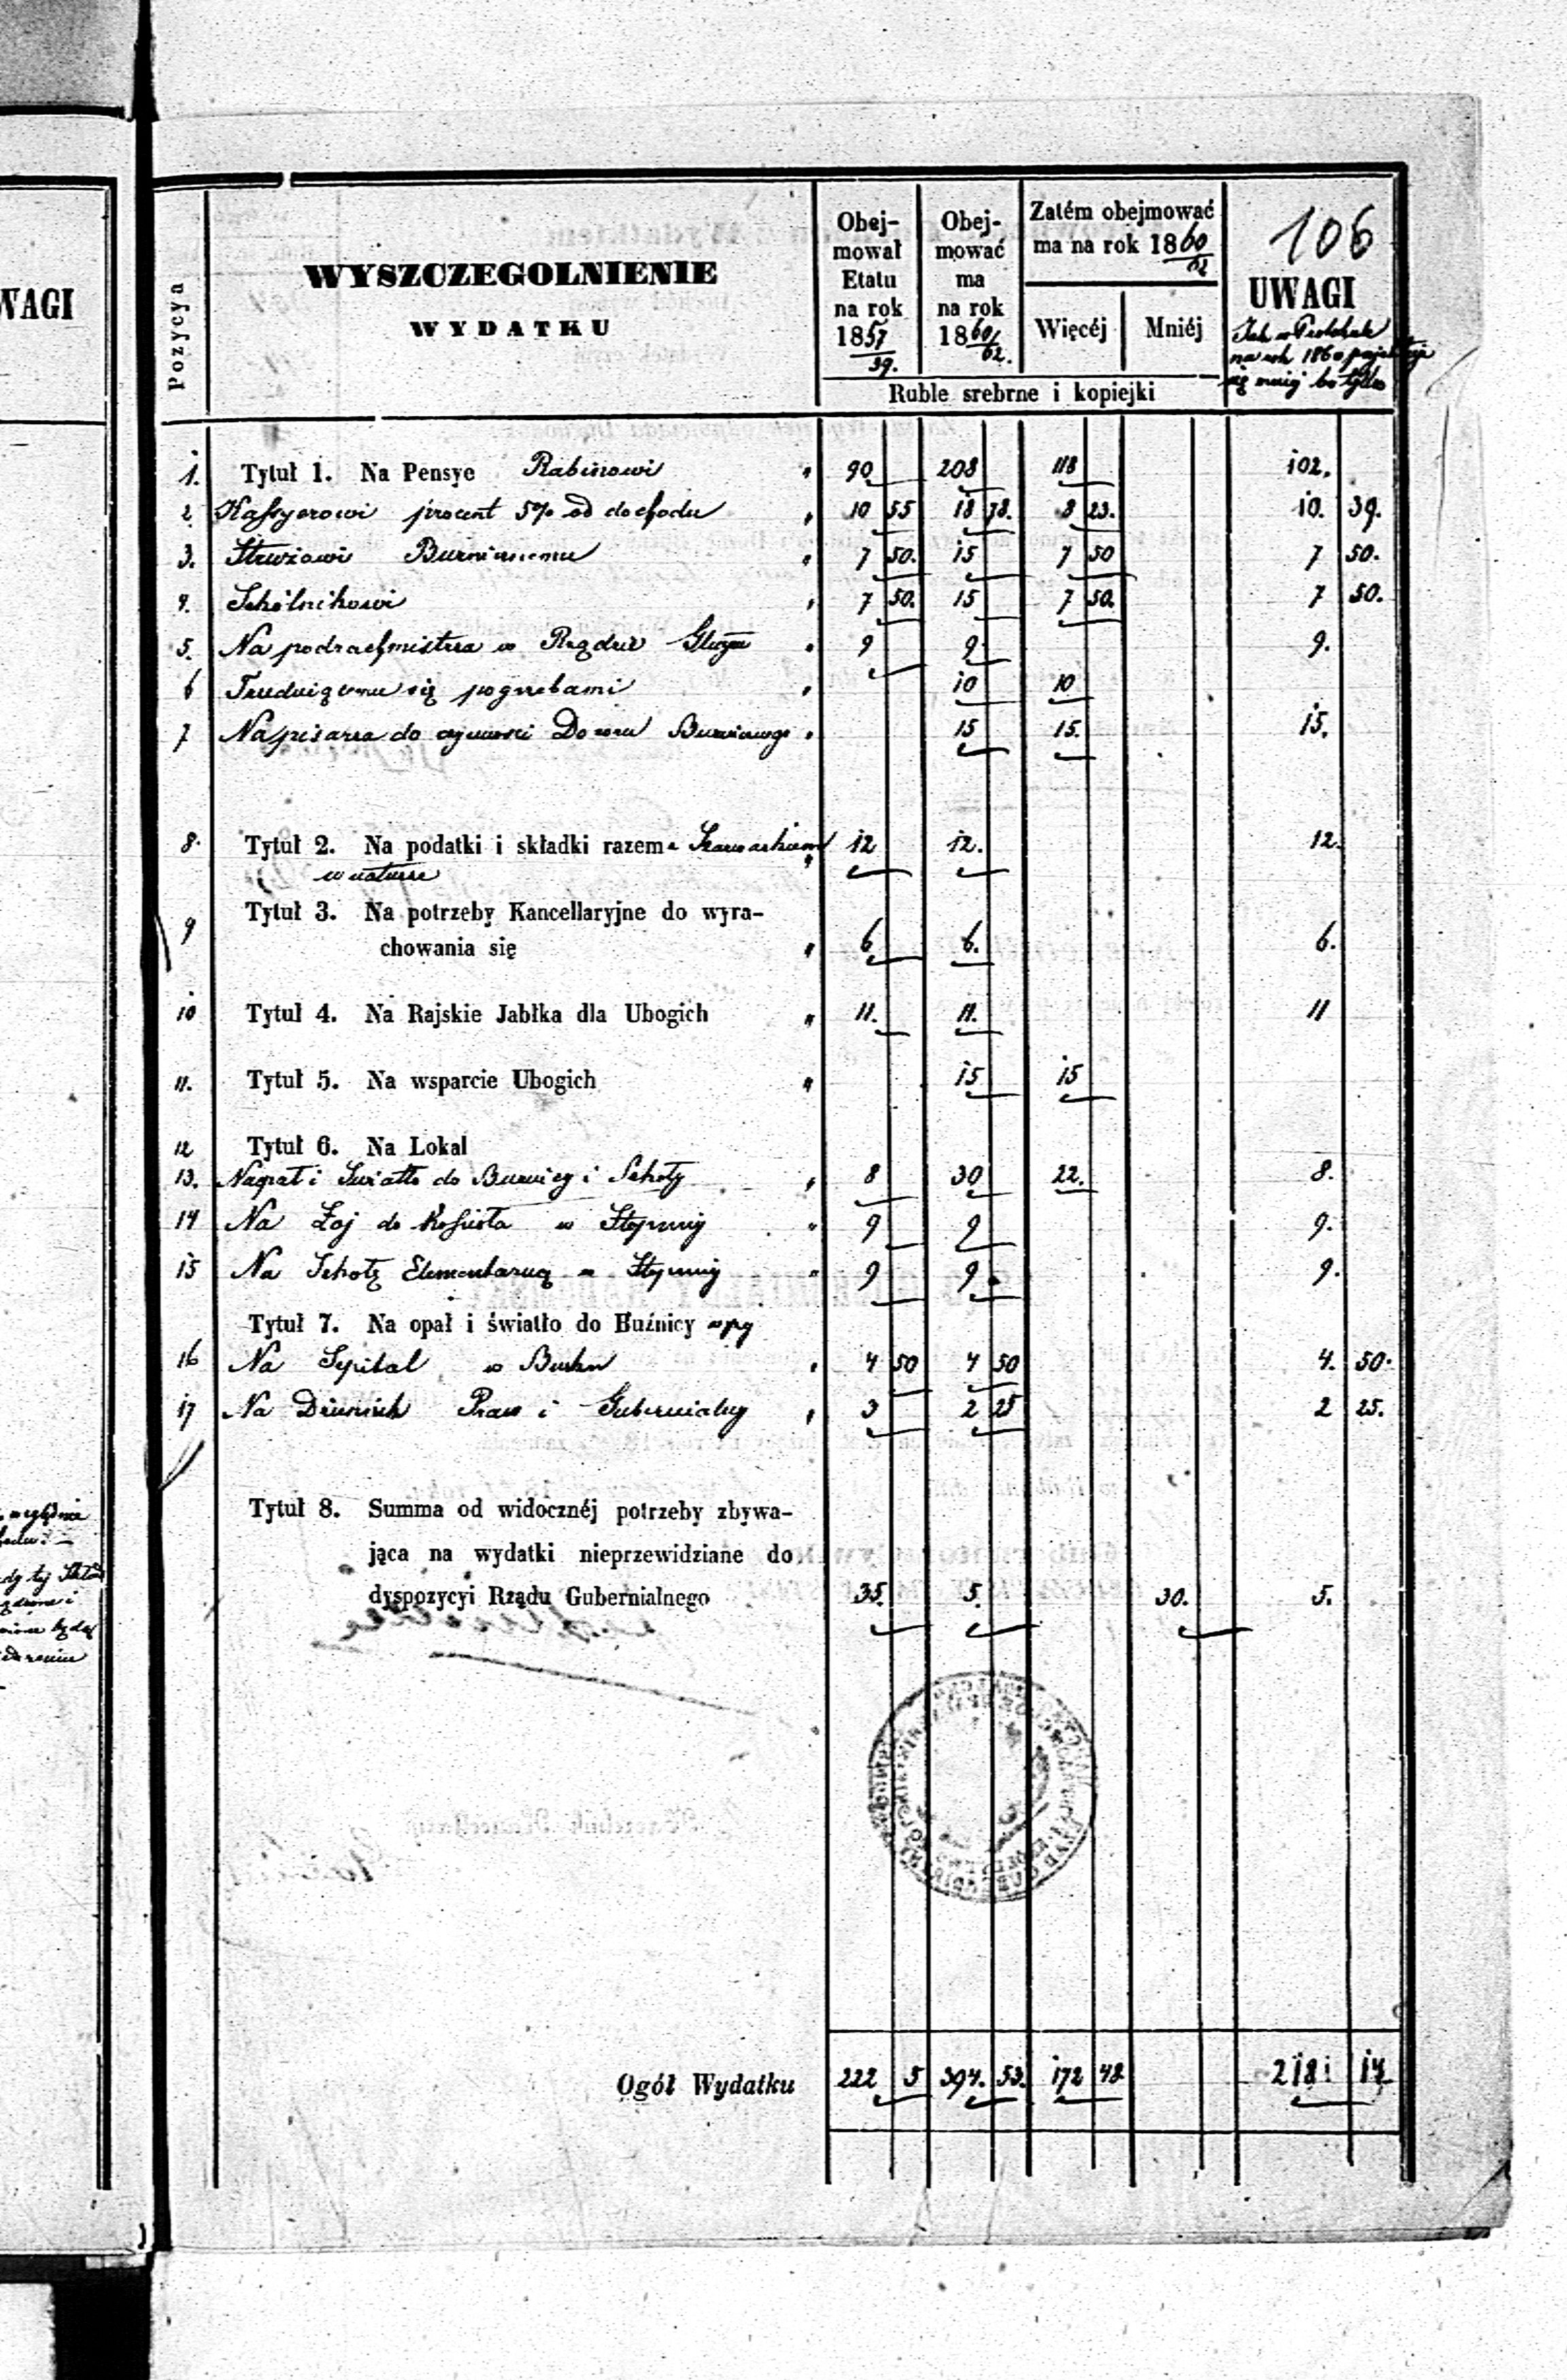 WAGI
106
Pozycya
WYSZCZEGOLNIENIE
WYDATKU
Obej-
mował
Etatu
na rok
1857/59.
Obej-
mować
ma
na rok
1860/62.
Zatém obejmować
ma na rok 1860/62
Więcéj Mniéj
Ruble srebrne i kopiejki
UWAGI
na rok 1860
się mniéj bo tylko
1. Tytuł 1. Na Pensye Rabinowi " 90 208 118 102.
2. Kassyerowi procent 5% od dochodu " 10 55 18 78. 8 23. 10. 39.
3. Stróżowi Buźnicznemu " 7 50. 15 7 50 7 50.
4. Szkólnikowi " 7 50. 15 7 50. 7 50.
5. Na podrachmistrza w Rządzie " 9 9 9.
6 Trudniącemu się pogrzebami " 10 10
7 Na pisarza do czynności Dozoru Buźnicznego " 15 15. 15.
8. Tytuł 2. Na podatki i składki razem z Szarwarkiem 12 12. 12.
w naturze "
9 Tytuł 3. Na potrzeby Kancellaryjne do wyra-
chowania się " 6 6. 6.
10 Tytuł 4. Na Rajskie Jabłka dla Ubogich " 11. 11. 11
11. Tytuł 5. Na wsparcie Ubogich " 15 15
12 Tytuł 6. Na Lokal
13. Na opał i Światło do Buźnicy i Szkoły " 8 30 22. 8.
14 Na Łój do Kościoła w Stopnicy " 9 9 9.
15 Na Szkołę Elementarną w Stopnicy " 9 9 9.
Tytuł 7. Na opał i światło do Buźnicy
16 Na Szpital w Busku " 4 50 4 50 4. 50.
17 Na Dziennik Praw i Gubernialny " 3 2 25 2 25.
Tytuł 8. Summa od widocznéj potrzeby zbywa-
jąca na wydatki nieprzewidziane do
dyspozycyi Rządu Gubernialnego 35. 5. 30. 5.
Ogół Wydatku 222 5 394. 53. 172 48 218 14